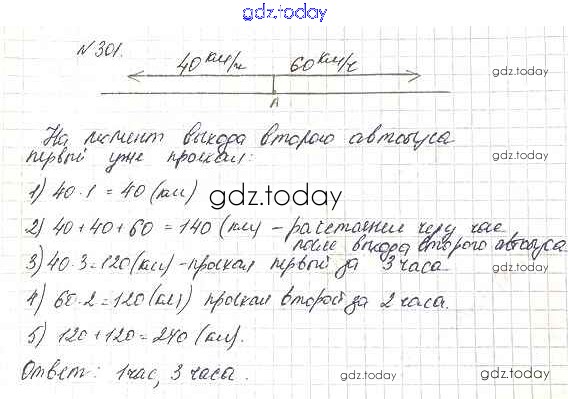 gdz.today
N 301.
40 км/ч 60 км/ч
gdz.today
А
На момент выхода второго автобуса
первый уже проехал:
gdz.today
1) 40·1 = 40 (км)
gdz.today
2) 40+40+60 = 140 (км) - расстояние через час
после выхода второго автобуса
3) 40·3=120 (км) - проехал первый за 3 часа
4) 60·2=120 (км) проехал второй за 2 часа.
5) 120+120=240 (км).
gdz.today
Ответ: 1час, 3 часа.
gdz.today
gdz.today